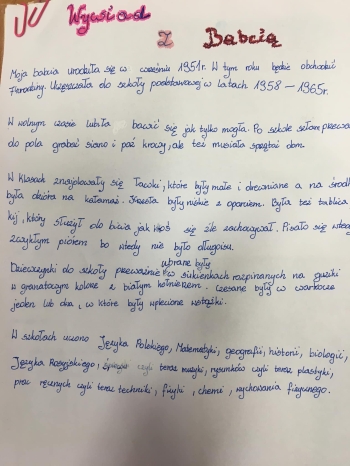 Wywiad z Babcią
Moja babcia urodziła się w wrześniu 1951r. W tym roku będzie obchodzić
urodziny. Uczęszczała do szkoły podstawowej w latach 1958 – 1965r.
W wolnym czasie lubiła bawić się jak tylko mogła. Po szkole
do pola grabić siano i paść krowy, ale też musiała sprzątać dom.
W klasach znajdowały się ławki, które były małe i drewniane a na środku
była dziura na kałamaż. Krzesła były niskie z oparciem. Była też tablica
kij, który służył do bicia jak ktoś się źle zachowywał. Pisało się wtedy
zwykłym piórem bo wtedy nie było długopisu.
ubrane były
Dziewczynki do szkoły przeważnie w sukienkach rozpinanych na guziki
w granatowym kolorze z białym kołnierzem. Czesane były w warkocze
jeden lub dwa, w które były wplecione wstążki.
W szkołach uczono Języka Polskiego, Matematyki, geografii, historii, biologii,
Języka Rosyjskiego, śpiewu czyli teraz muzyki, rysunków czyli teraz plastyki,
prac ręcznych czyli teraz techniki, fizyki, chemi, wychowania fizycznego.